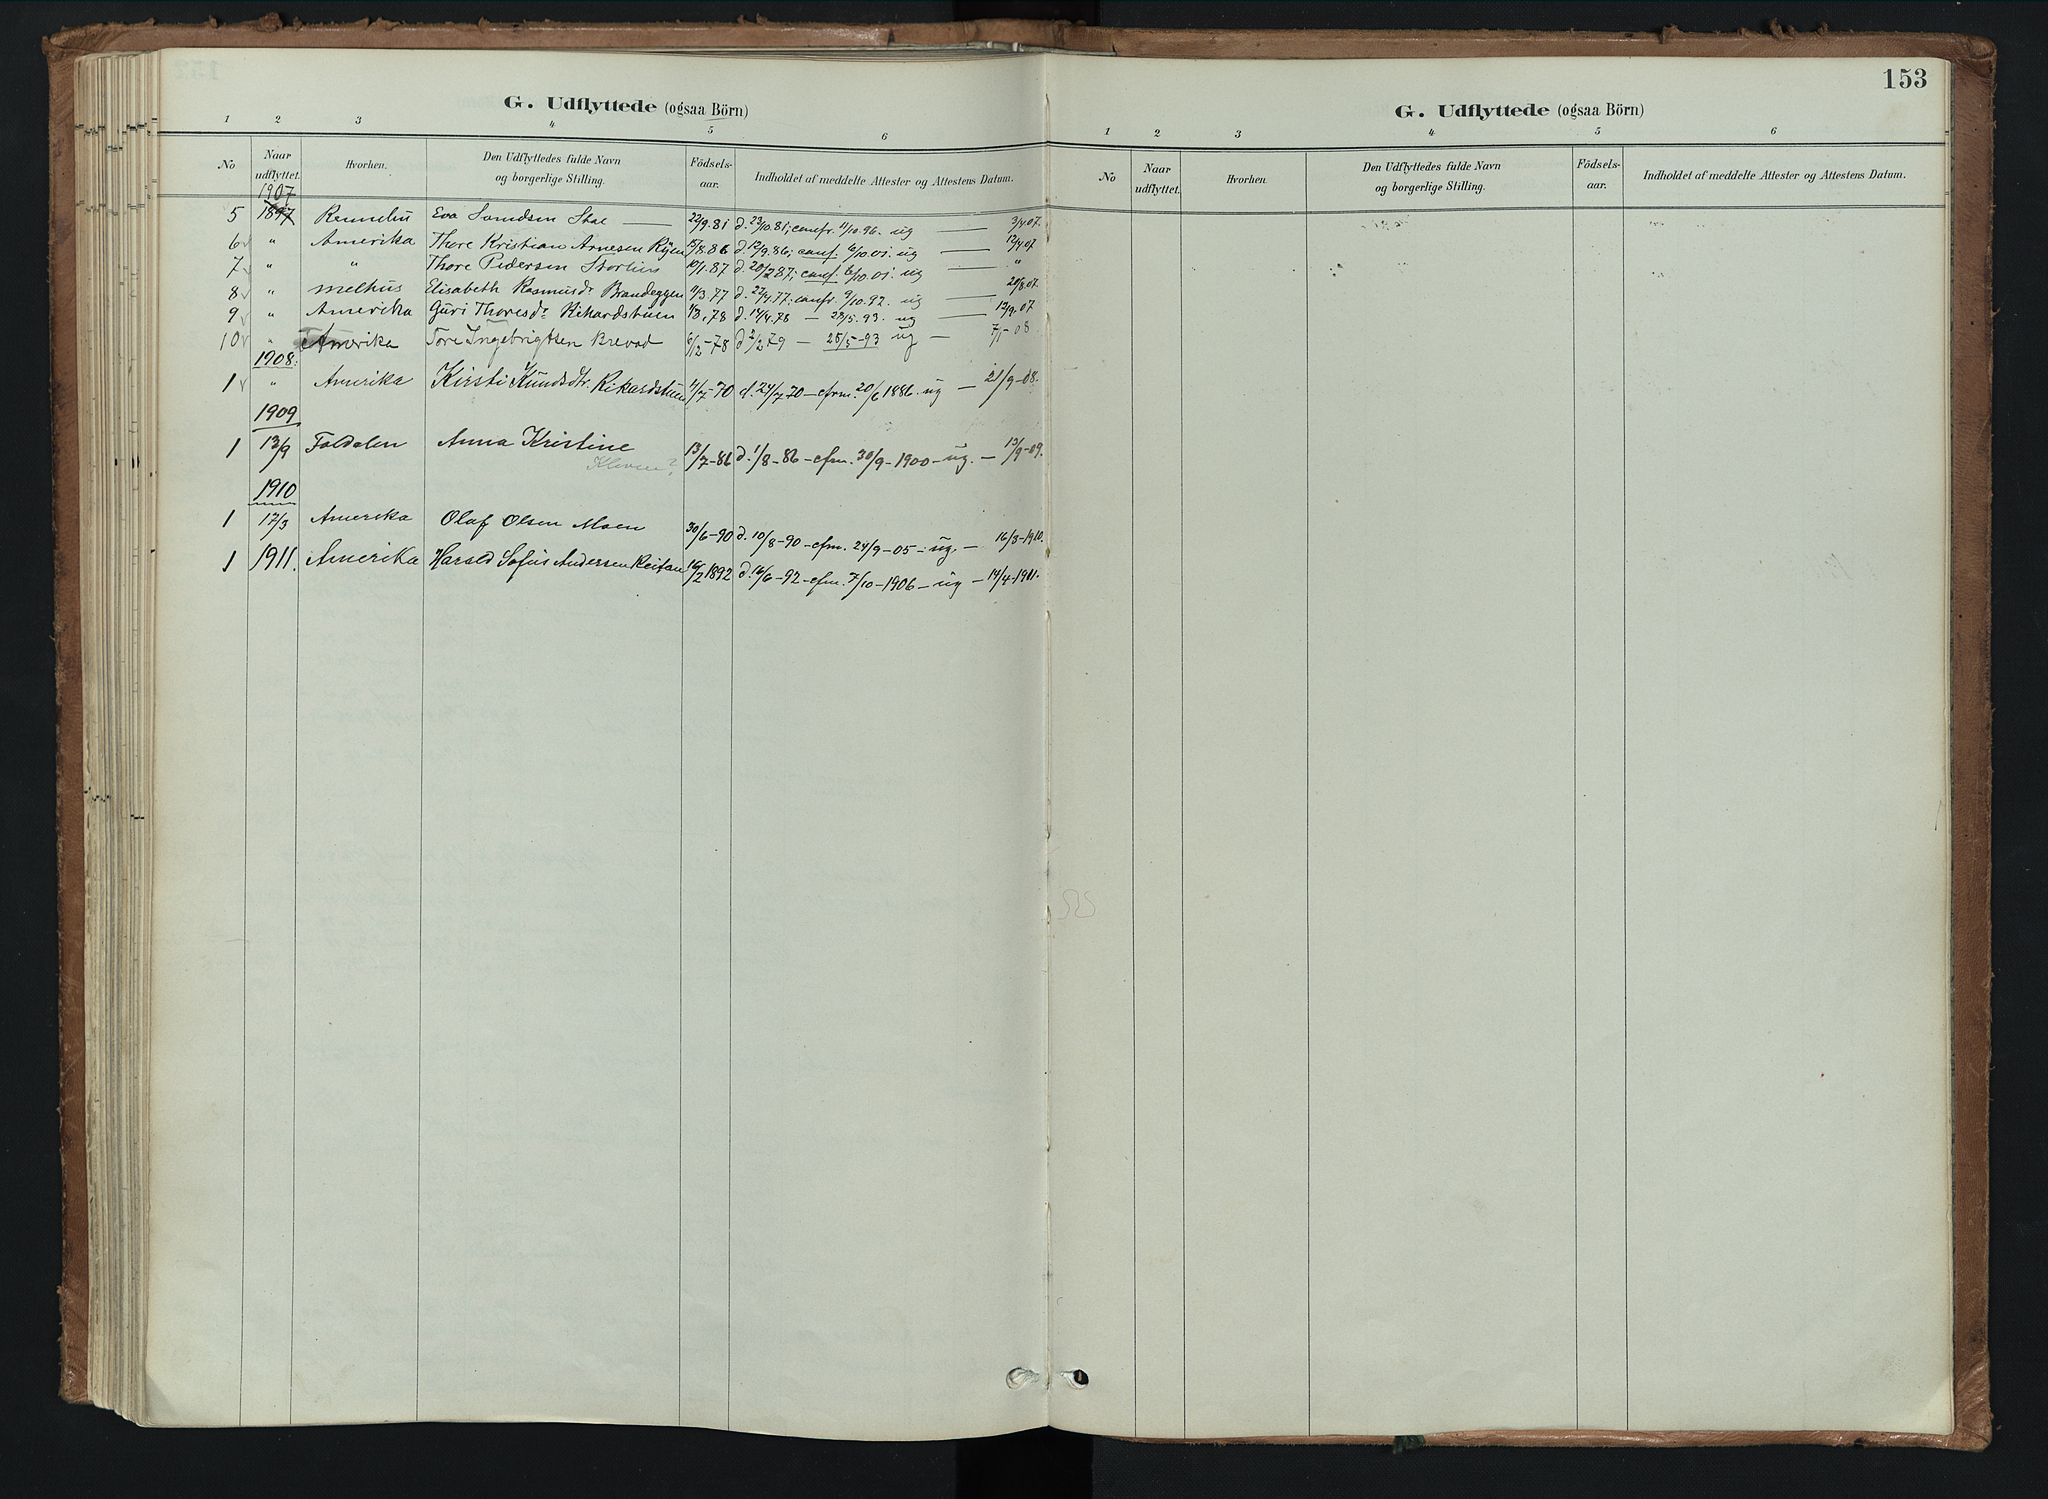 153
G. Udflyttede (ogsaa Börn)
1 2 3 4 5 6
No Naar udflyttet. Hvorhen. Den Udflyttedes fulde Navn og borgerlige Stilling. Födsels-aar. Indholdet af meddelte Attester og Attestens Datum.
1907
5 1897 Eva 22/9.81 d. 23/10.81; confr. 11/10.96. ug — 3/4 07.
6 " Amerika Thore Kristian Arnesen Ryen 15/8.86 d. 12/9.86; conf. 6/10.01. ug — 12/4 07
7 " " Thore Pedersen 10/1.87 d. 20/2 87; conf. 6/10.01. ug — "
8 " Melhus Elisabeth Rasmusdr Brandeggen 11/3.77 d. 22/4.77. confr. 9/10.92. ug — 20/8.07.
9 " Amerika Guri Thoresdr Rikardstuen 1/3.78 d. 14/4.78 — 28/5.93. ug — 12/9.07
10 " Amerika Tore Ingebrigtsen Brevad 6/12-78 d 2/2 79 — 28/5-93 ug — 7/1-08.
1908.
1 " Amerika Kirsti Knudsdtr. Rikardstuen 11/7-70 d. 24/7 70 – cfrm. 20/6 1886. ug — 21/9-08.
1909
1 13/9 Foldalen Anna Kristine 13/7-86 d. 1/8-86 – cfrm. 30/9-1900 – ug. — 13/9-09.
1910
1 17/3 Amerika Olaf Olsen Moen 30/6-90 d. 10/8-90 – cfrm. 24/9-05 – ug. — 16/3-1910.
1 1911. Amerika Harald Sofus Andersen Reitan 16/2 1892 d. 16/6-92 – cfrm. 7/10-1906 – ug — 19/4-1911.
G. Udflyttede (ogsaa Börn)
1 2 3 4 5 6
No Naar udflyttet. Hvorhen. Den Udflyttedes fulde Navn og borgerlige Stilling. Födsels-aar. Indholdet af meddelte Attester og Attestens Datum.